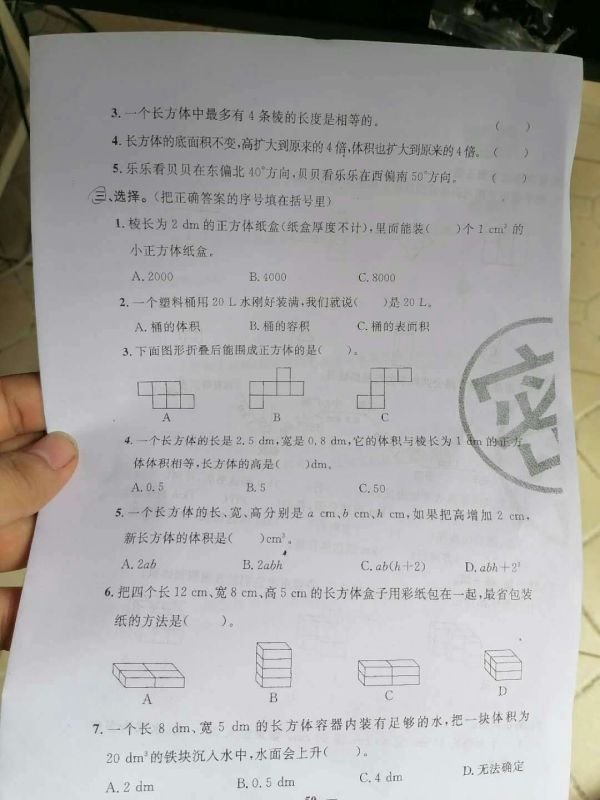 3. 一个长方体中最多有 4 条棱的长度是相等的。 ( )
4. 长方体的底面积不变,高扩大到原来的 4 倍,体积也扩大到原来的 4 倍。 ( )
5. 乐乐看贝贝在东偏北 40°方向,贝贝看乐乐在西偏南 50°方向。 ( )
三、选择。(把正确答案的序号填在括号里)
1. 棱长为 2 dm 的正方体纸盒(纸盒厚度不计),里面能装( )个 1 cm³ 的
小正方体纸盒。
A. 2000 B. 4000 C. 8000
2. 一个塑料桶用 20 L 水刚好装满,我们就说( )是 20 L。
A. 桶的体积 B. 桶的容积 C. 桶的表面积
3. 下面图形折叠后能围成正方体的是( )。
A B C
密
4. 一个长方体的长是 2.5 dm,宽是 0.8 dm,它的体积与棱长为 1 dm 的正方
体体积相等,长方体的高是( )dm。
A. 0.5 B. 5 C. 50
5. 一个长方体的长、宽、高分别是 a cm、b cm、h cm,如果把高增加 2 cm,
新长方体的体积是( )cm³。
A. 2ab B. 2abh C. ab(h+2) D. abh+2³
6. 把四个长 12 cm、宽 8 cm、高 5 cm 的长方体盒子用彩纸包在一起,最省包装
纸的方法是( )。
A B C D
7. 一个长 8 dm、宽 5 dm 的长方体容器内装有足够的水,把一块体积为
20 dm³的铁块沉入水中,水面会上升( )。
A. 2 dm B. 0.5 dm C. 4 dm D. 无法确定